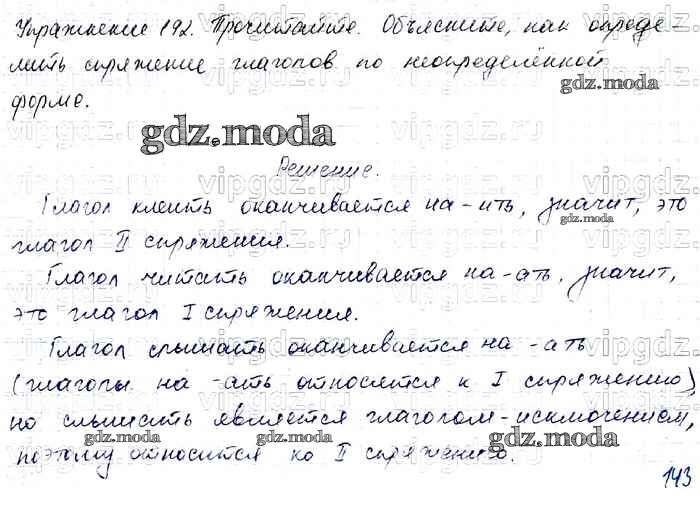 Упражнение 192. Прочитайте. Объясните, как опреде-
лить спряжение глаголов по неопределённой
gdz.moda
форме.
gdz.moda
Решение.
Глагол клеить оканчивается на -ить, значит, это
gdz.moda
глагол II спряжения.
Глагол читать оканчивается на -ать, значит,
это глагол I спряжения.
Глагол слышать оканчивается на -ать
(глаголы на -ать относятся к I спряжению),
но слышать является глаголом-исключением,
gdz.moda
gdz.moda
поэтому относится ко II спряжению.
143
vipgdz.ru